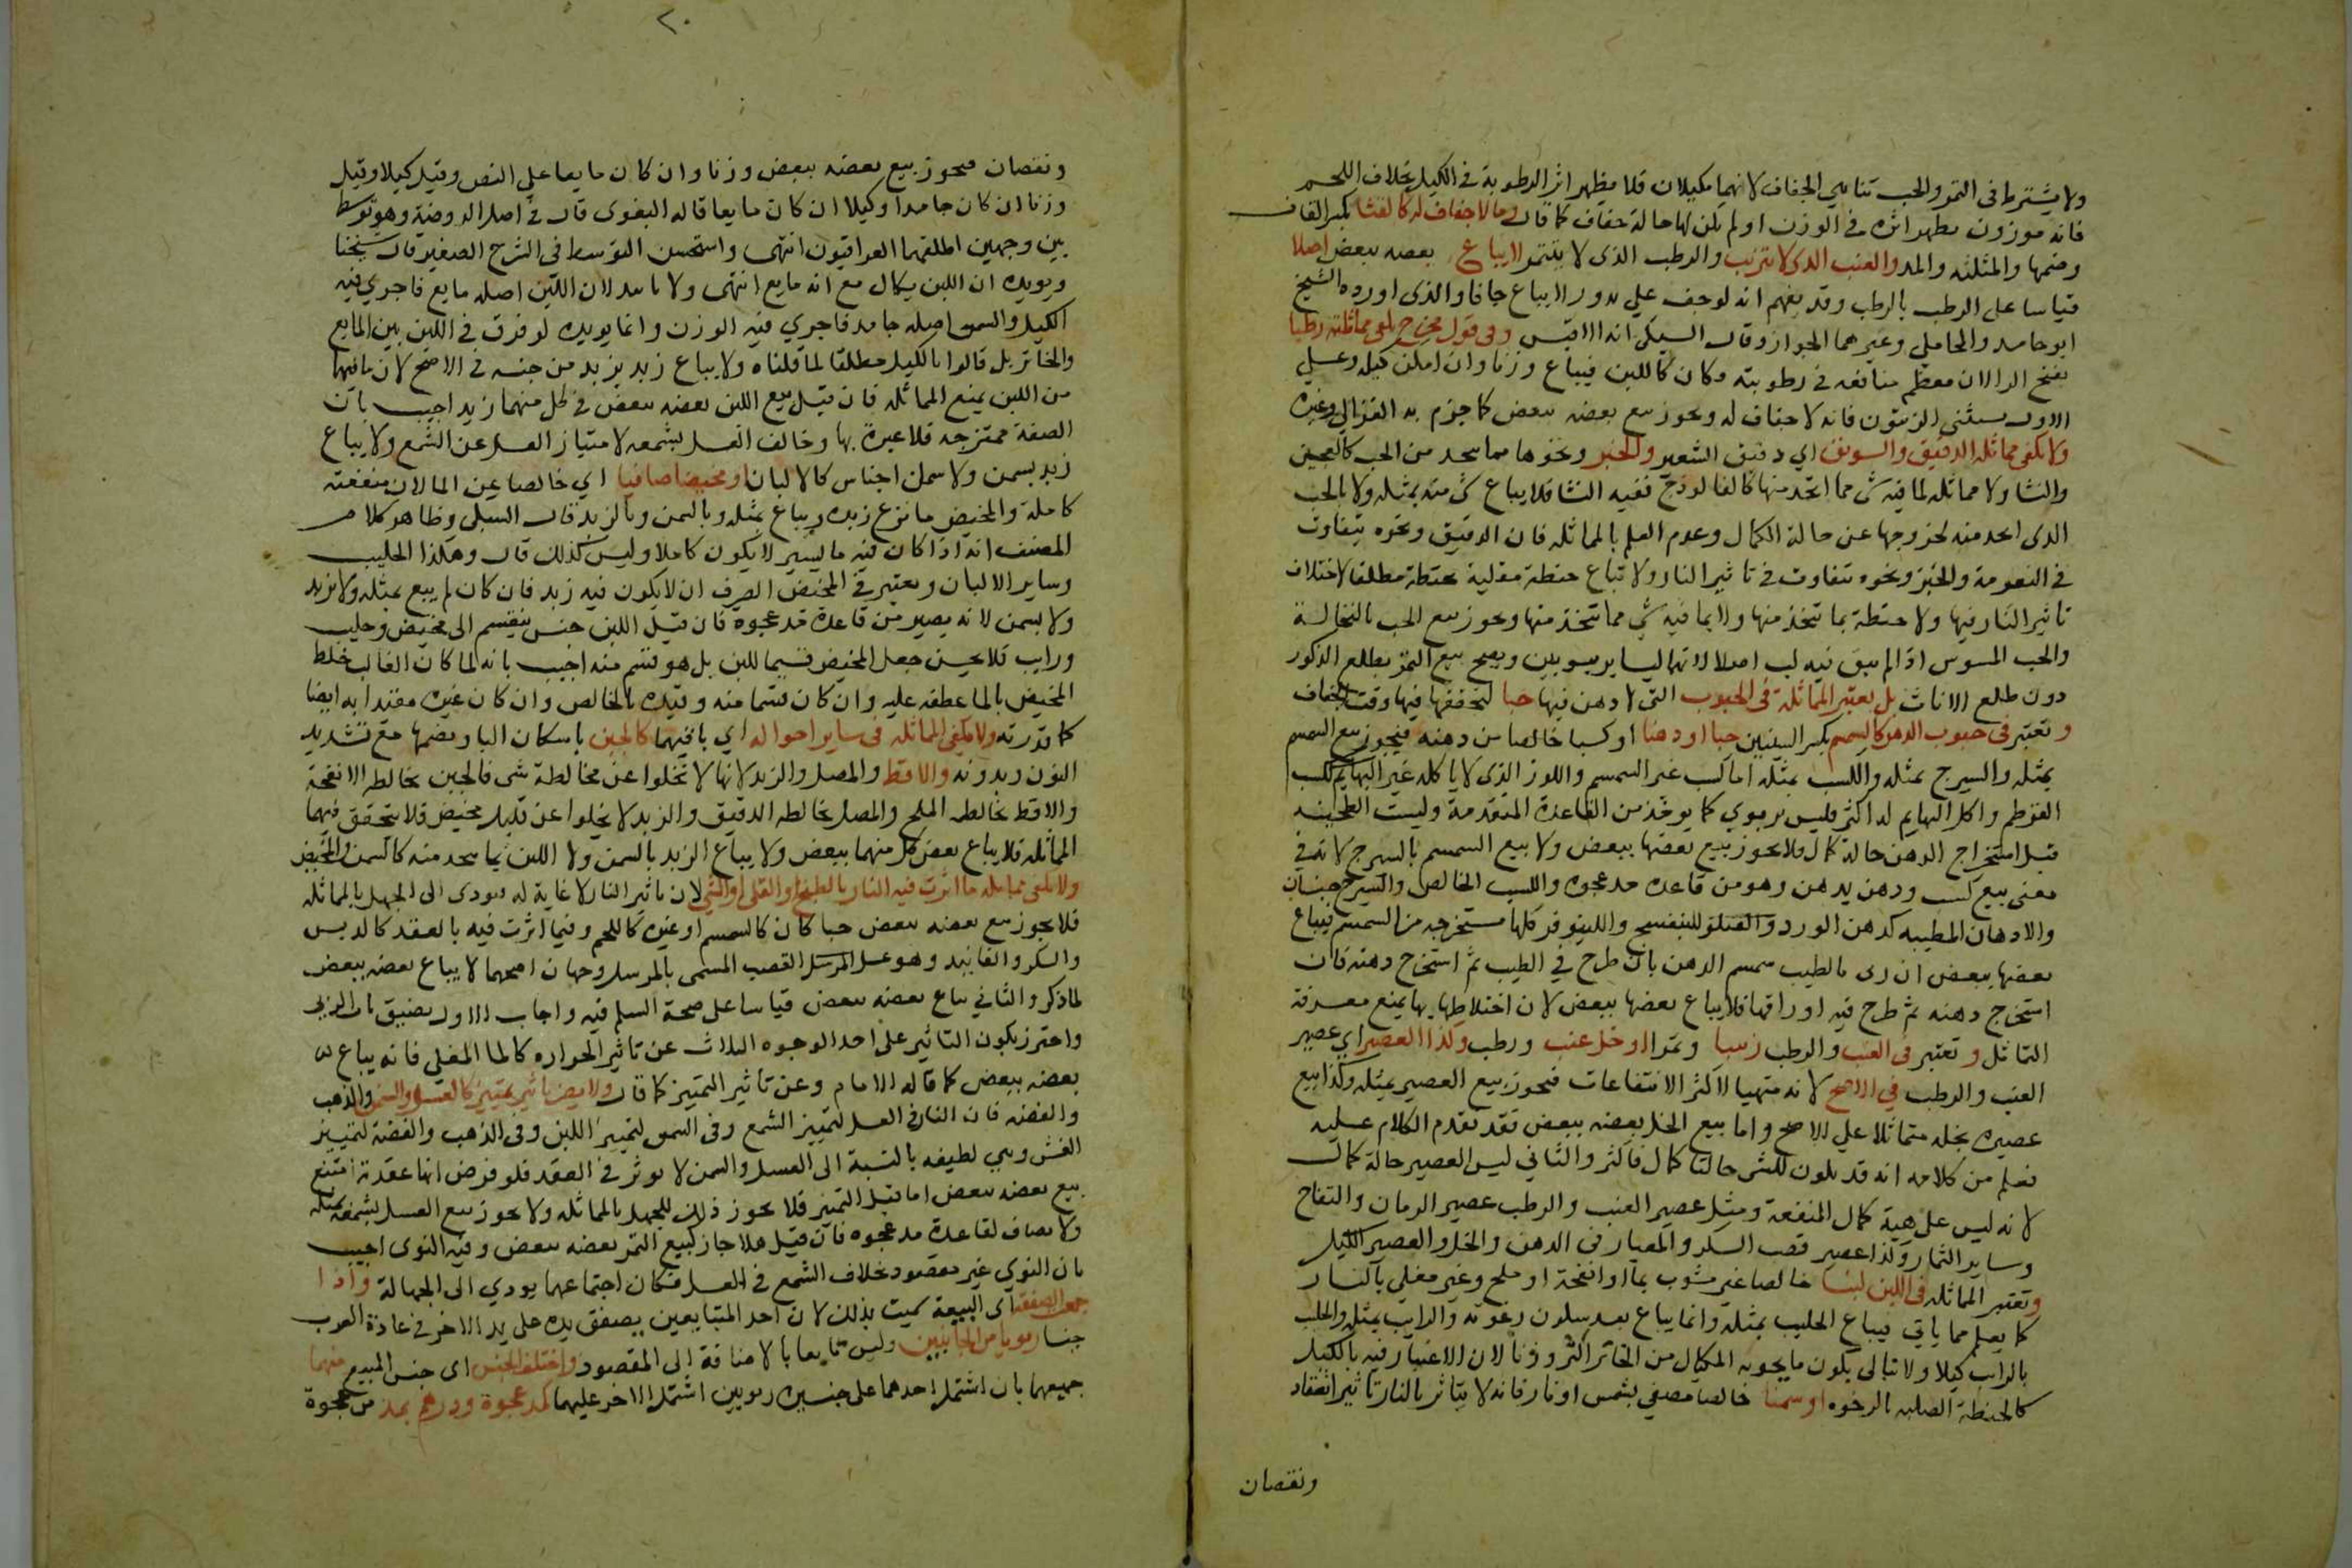 ولا يشترط في التمر والحب تناهي الجفاف لانهما مكيلان فلا يظهر اثر الرطوبة في الكيل بخلاف اللحم
فانه موزون يظهر اثره في الوزن او لم يكن لها حالة جفاف كما قال وما لا جفاف له كالقثا بكسر القاف
وضمها والمثلثه والمد والعنب الذي لا يتزبب والرطب الذي لا يتتمر لا يباع بعضه ببعض اصلا
قياسا على الرطب بالرطب وقد يفهم انه لو جف على ندور لا يباع جافا والذي اورده الشيخ
ابو حامد والمحاملي وغيرهما الجواز وقال السبكي انه الاقيس وفي قول مخرج تكفي مماثلته رطبا
بفتح الرا لان معظم منافعه في رطوبته وكان كاللبن فيباع وزنا وان امكن كيله وعلى
الاول يستثنى الزيتون فانه لا جفاف له ويجوز بيع بعضه ببعض كما جزم به الغزالي وغيره
ولا تكفي مماثلة الدقيق والسويق اي دقيق الشعير والخبز ونحوها مما يتخذ من الحب كالعجين
والنشا ولا مماثلة لما فيه شي مما اتخذ منها كالفالوذج ففيه النشا فلا يباع شي منه بمثله ولا بالحب
الذي اتخذ منه لخروجها عن حالة الكمال وعدم العلم بالمماثله فان الدقيق ونحوه يتفاوت
في النعومة والخبز ونحوه يتفاوت في تاثير النار ولا تباع حنطة مقلية بحنطة مطلقا لاختلاف
تاثير النار فيها ولا حنطة بما يتخذ منها ولا بما فيه شي مما يتخذ منها ويجوز بيع الحب بالنخالة
والحب المسوس اذا لم يبق فيه لب اصلا لانهما ليسا بربويين ويصح بيع التمر بطلع الذكور
دون طلع الاناث بل تعتبر المماثلة في الحبوب التي لا دهن فيها حبا لتحققها فيها وقت الجفاف
وتعتبر في حبوب الدهن كالسمسم بكسر السينين حبا او دهنا او كسبا خالصا من دهنه فيجوز بيع السمسم
بمثله والسيرج بمثله والكسب بمثله اما كسب غير السمسم واللوز الذي لا ياكله غير البهايم ككسب
القرطم واكل البهايم له اكثر فليس بربوي كما يوخذ من القاعدة المتقدمة وليست الطحينه
قبل استخراج الدهن حالة كمال فلا يجوز بيع بعضها ببعض ولا بيع السمسم بالسيرج لانه في
معنى بيع كسب ودهن بدهن وهو من قاعدة مد عجوه والكسب الخالص والسيرج جنسان
والادهان المطيبه كدهن الورد والبنفسج والنيلوفر كلها مستخرجه من السمسم فيباع
بعضها ببعض ان ربى بالطيب سمسم الدهن بان طرح في الطيب ثم استخرج دهنه فان
استخرج دهنه ثم طرح فيه اوراقها فلا يباع بعضها ببعض لان اختلاطها بها يمنع معرفة
التماثل وتعتبر في العنب والرطب زبيبا وتمرا او خل عنب ورطب وكذا العصير اي عصير
العنب والرطب في الاصح لانه متهيا لاكثر الانتفاعات فيجوز بيع العصير بمثله وكذا بيع
عصيره بخله متماثلا على الاصح واما بيع الخل بعضه ببعض فقد تقدم الكلام عليه
فعلم من كلامه انه قد يكون للشي حالتا كمال فاكثر والثاني ليس العصير حالة كمال
لانه ليس على هيئة كمال المنفعة ومثل عصير العنب والرطب عصير الرمان والتفاح
وساير الثمار وكذا عصير قصب السكر والمعيار في الدهن والخل والعصير الكيل
وتعتبر المماثلة في اللبن لبنا خالصا غير مشوب بما او انفحة او ملح وغير مغلي بالنار
كما يعلم مما ياتي فيباع الحليب بمثله وانما يباع بعد سكون رغوته والرايب بمثله والحلب
بالرايب كيلا ولا تبالي بكون ما يحويه المكيال من الخاثر اكثر وزنا لان الاعتبار فيه بالكيل
كالحنطة الصلبه بالرخوه او سمنا خالصا مصفى بشمس او نار فانه لا يتاثر بالنار تاثير انعقاد
ونقصان
٢٠
ونقصان فيجوز بيع بعضه ببعض وزنا وان كان مايعا على النص وقيل كيلا وقيل
وزنا ان كان جامدا وكيلا ان كان مايعا قاله البغوي قال في اصل الروضة وهو توسط
بين وجهين اطلقهما العراقيون انتهى واستحسن التوسط في الشرح الصغير قال شيخنا
ويويده ان اللبن يكال مع انه مايع انتهى ولا تاييد لان اللبن اصله مايع فاجري فيه
الكيل والسمن اصله جامد فاجري فيه الوزن وانما يويده لو فرق في اللبن بين المايع
والخاثر بل قالوا بالكيل مطلقا لما قلناه ولا يباع زبد بزبد من جنسه في الاصح لان ما فيهما
من اللبن يمنع المماثله فان قيل بيع اللبن بعضه ببعض في كل منهما زبد اجيب بان
الصفة ممتزجه فلا عبرة بها وخالف العسل بشمعه لامتياز العسل عن الشمع ولا يباع
زبد بسمن ولا سمك اجناس كالالبان او مخيضا صافيا اي خالصا عن الما لان منفعته
كاملة والمخيض ما نزع زبده ويباع بمثله وبالسمن وبالزبد قال السبكي وظاهر كلام
المصنف انه اذا كان فيه ما يسير لا يكون كاملا وليس كذلك قال وهكذا الحليب
وساير الالبان ويعتبر في المخيض الصرف ان لا يكون فيه زبد فان كان لم يبع بمثله ولا بزبد
ولا بسمن لانه يصير من قاعدة مد عجوه فان قيل اللبن جنس ينقسم الى مخيض وحليب
ورايب فلا يحسن جعل المخيض قسيما للبن بل هو قسم منه اجيب بانه لما كان الغالب خلط
المخيض بالما عطفه عليه وان كان قسما منه وقيده بالخالص وان كان غيره مقيدا به ايضا
كما قدرته ولا تكفي المماثله في ساير احواله اي باقيهما كالجبن باسكان البا وضمها مع تشديد
النون وبدونه والاقط والمصل والزبد لانها لا تخلوا عن مخالطة شي فالجبن يخالطه الانفحة
والاقط يخالطه الملح والمصل يخالطه الدقيق والزبد لا يخلوا عن قليل مخيض فلا تتحقق فيهما
المماثله فلا يباع بعض كل منهما ببعض ولا يباع الزبد بالسمن ولا اللبن بما يتخذ منه كالسمن والمخيض
ولا تكفي مماثله ما اثرت فيه النار بالطبخ او القلي او الشي لان تاثير النار لا غاية له فيودي الى الجهل بالمماثله
فلا يجوز بيع بعضه ببعض حبا كان كالسمسم او غيره كاللحم وفيما اثرت فيه بالعقد كالدبس
والسكر والفانيد وهو عسل المرسل القصب المسمى بالمرسل وجهان اصحهما لا يباع بعضه ببعض
لما ذكر والثاني يباع بعضه ببعض قياسا على صحة السلم فيه واجاب الاول بضيق باب الربى
واحترز بكون التاثير على احد الوجوه الثلاث عن تاثير الحراره كالما المغلي فانه يباع
بعضه ببعض كما قاله الامام وعن تاثير التمييز كما قال ولا يضر تاثير تمييز كالعسل والسمن والذهب
والفضه فان النار في العسل لتمييز الشمع وفي السمن لتمييز اللبن وفي الذهب والفضة لتمييز
الغش وهي لطيفه بالنسبة الى العسل والسمن لا توثر في العقد فلو فرض انها عقدته امتنع
بيع بعضه ببعض اما قبل التمييز فلا يجوز ذلك للجهل بالمماثله ولا يجوز بيع العسل بشمعه بمثله
ولا يضاف لقاعدة مد عجوه فان قيل هلا جاز كبيع التمر بعضه ببعض وفيه النوى اجيب
بان النوى غير مقصود بخلاف الشمع في العسل فكان اجتماعهما يودي الى الجهالة واذا
جمع الصفقة اي البيعة سميت بذلك لان احد المتبايعين يصفق يده على يد الاخر في عادة العرب
جنسا ربويا من الجانبين وليس تابعا بالاضافة الى المقصود واختلف الجنس اي جنس المبيع منهما
جميعهما بان اشتمل احدهما على جنسين ربويين اشتمل الاخر عليهما كمد عجوة ودرهم بمد من عجوة